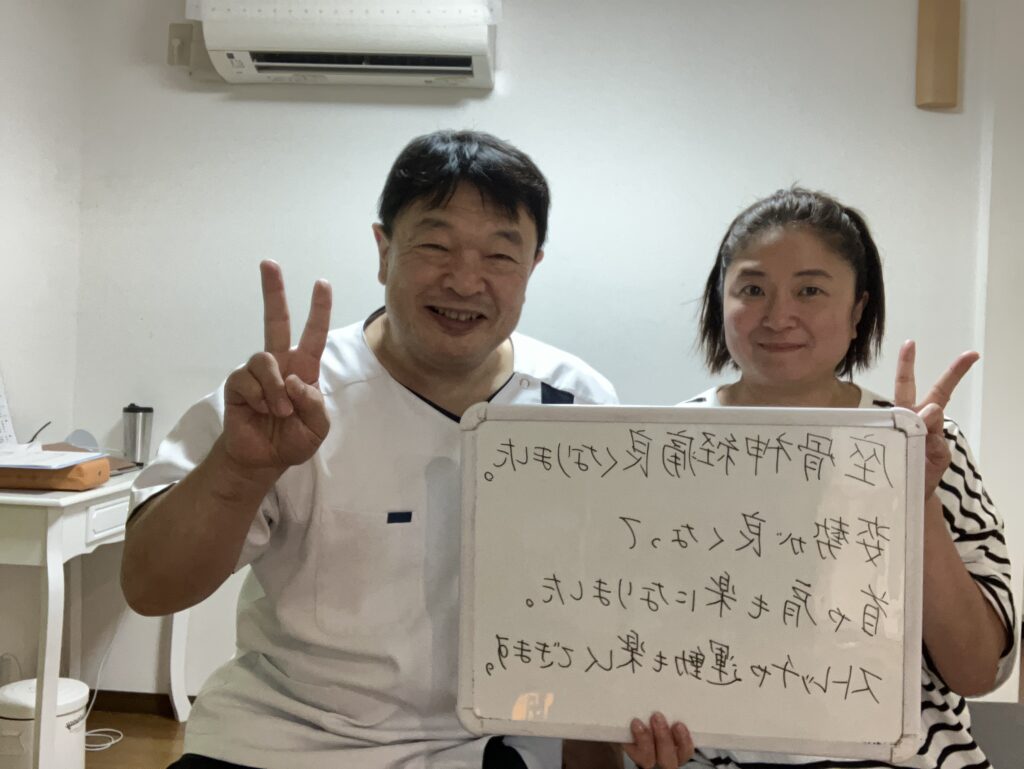 座骨神経痛良くなりました。
姿勢が良くなって
首や肩も楽になりました。
ストレッチや運動も楽しくできます。